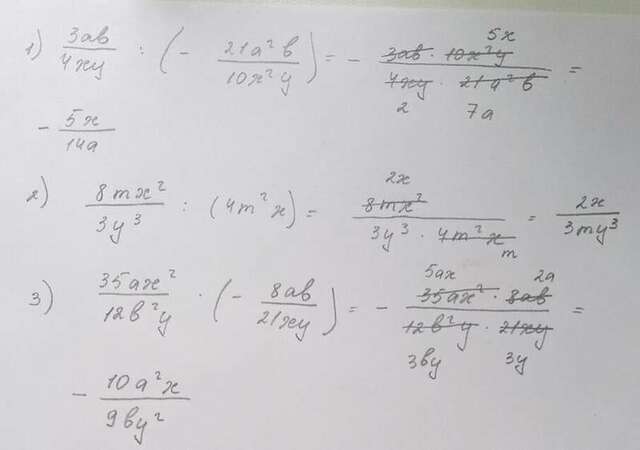 1) 3ab/4xy : (- 21a²b/10x²y) = - 3ab · 10x²y 5x / 4xy 2 · 21a²b 7a =
- 5x/14a
2) 8mx²/3y³ : (4m²x) = 8mx² 2x / 3y³ · 4m²x m = 2x/3my³
3) 35ax²/12b²y · (- 8ab/21xy) = - 35ax² 5ax · 8ab 2a / 12b²y 3by · 21xy 3y =
- 10a²x/9by²